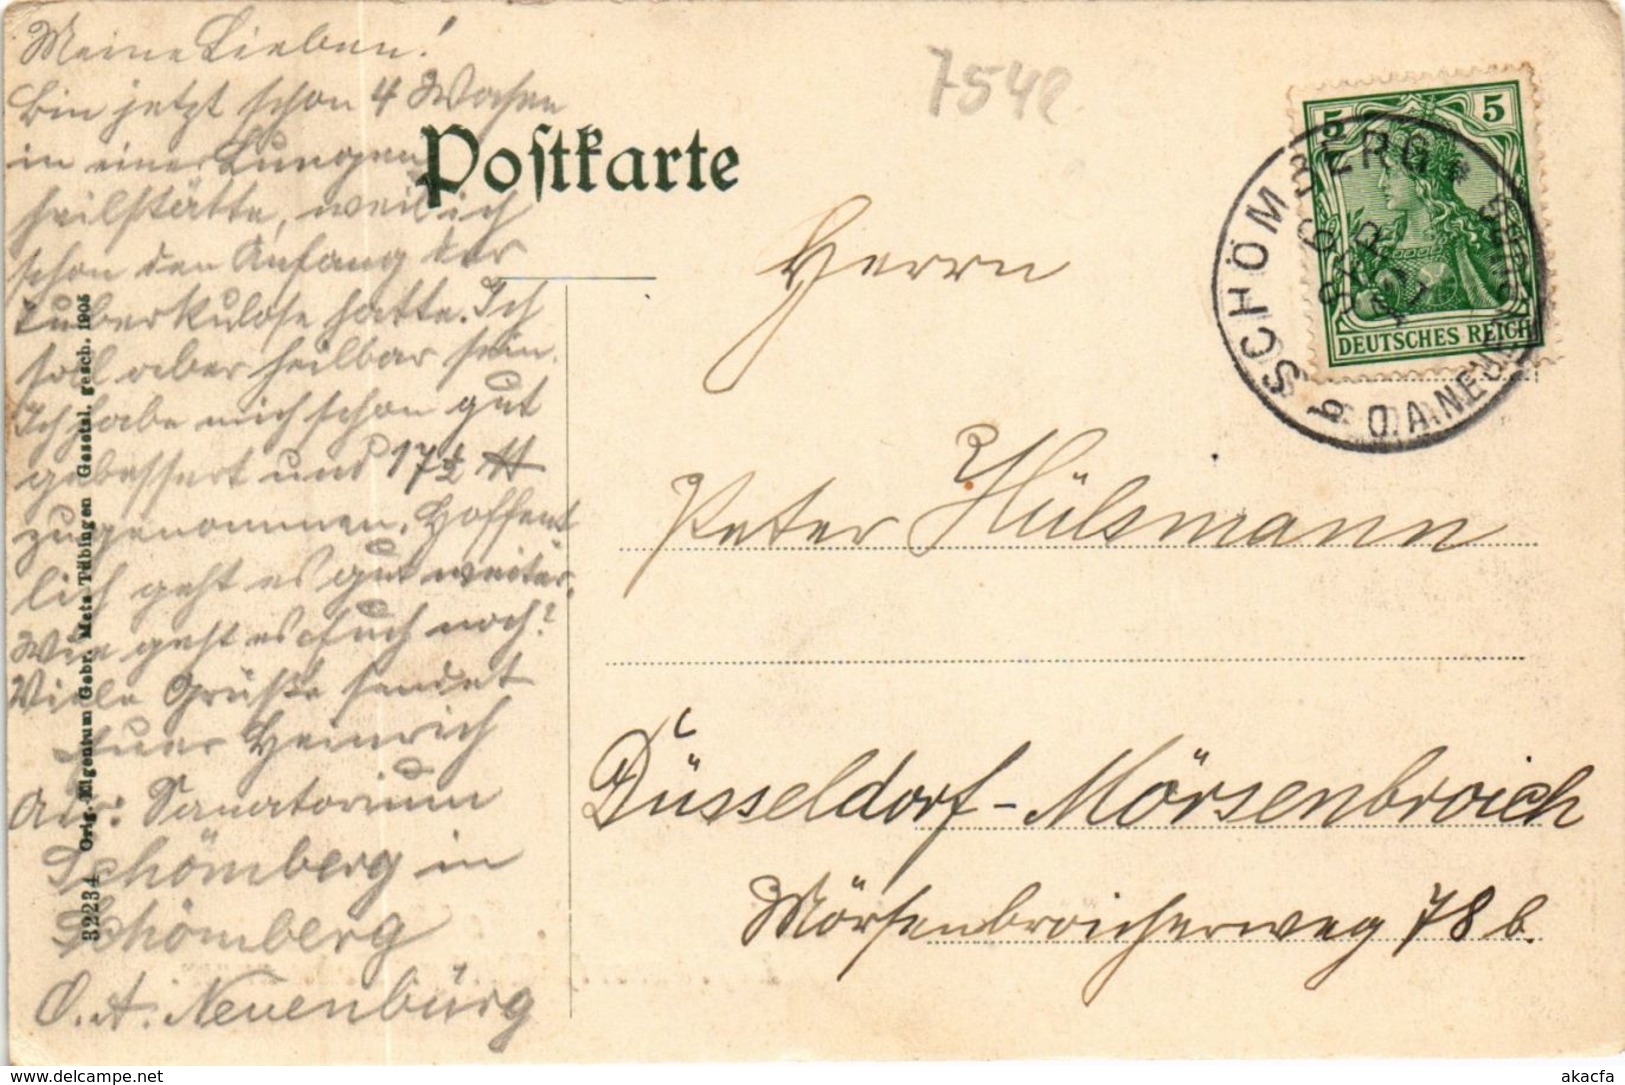 Meine Lieben!
Bin jetzt schon 4 Wochen
in einer Lungen
heilstätte, weil ich
schon den Anfang der
Tuberkulose hatte. Ich
soll aber heilbar sein.
Ich habe mich schon gut
gebessert und 17½ ℔
zugenommen. Hoffent
lich geht es gut weiter.
Wie geht es Euch noch?
Viele Grüße sendet
Euer Heinrich
Adr: Sanatorium
Schömberg in
Schömberg
O.A. Neuenbürg
32234 Orig.-Eigentum Gebr. Metz Tübingen Gesetzl. gesch. 1905
Postkarte
7542
5 5
DEUTSCHES REICH
SCHÖMBERG *
b. O.A. NEUENBÜRG
Herrn
Peter Hülsmann
Düsseldorf-Mörsenbroich
Mörsenbroicherweg 78 b.
akacfa